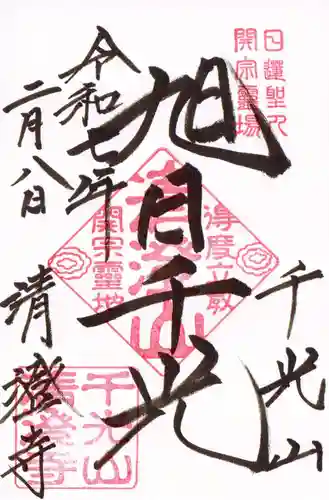 日蓮聖人
開宗靈場
千光山
旭日千光
得度立教
開宗靈地
清澄山
令和七年
二月八日
清澄寺
千光山
清澄寺